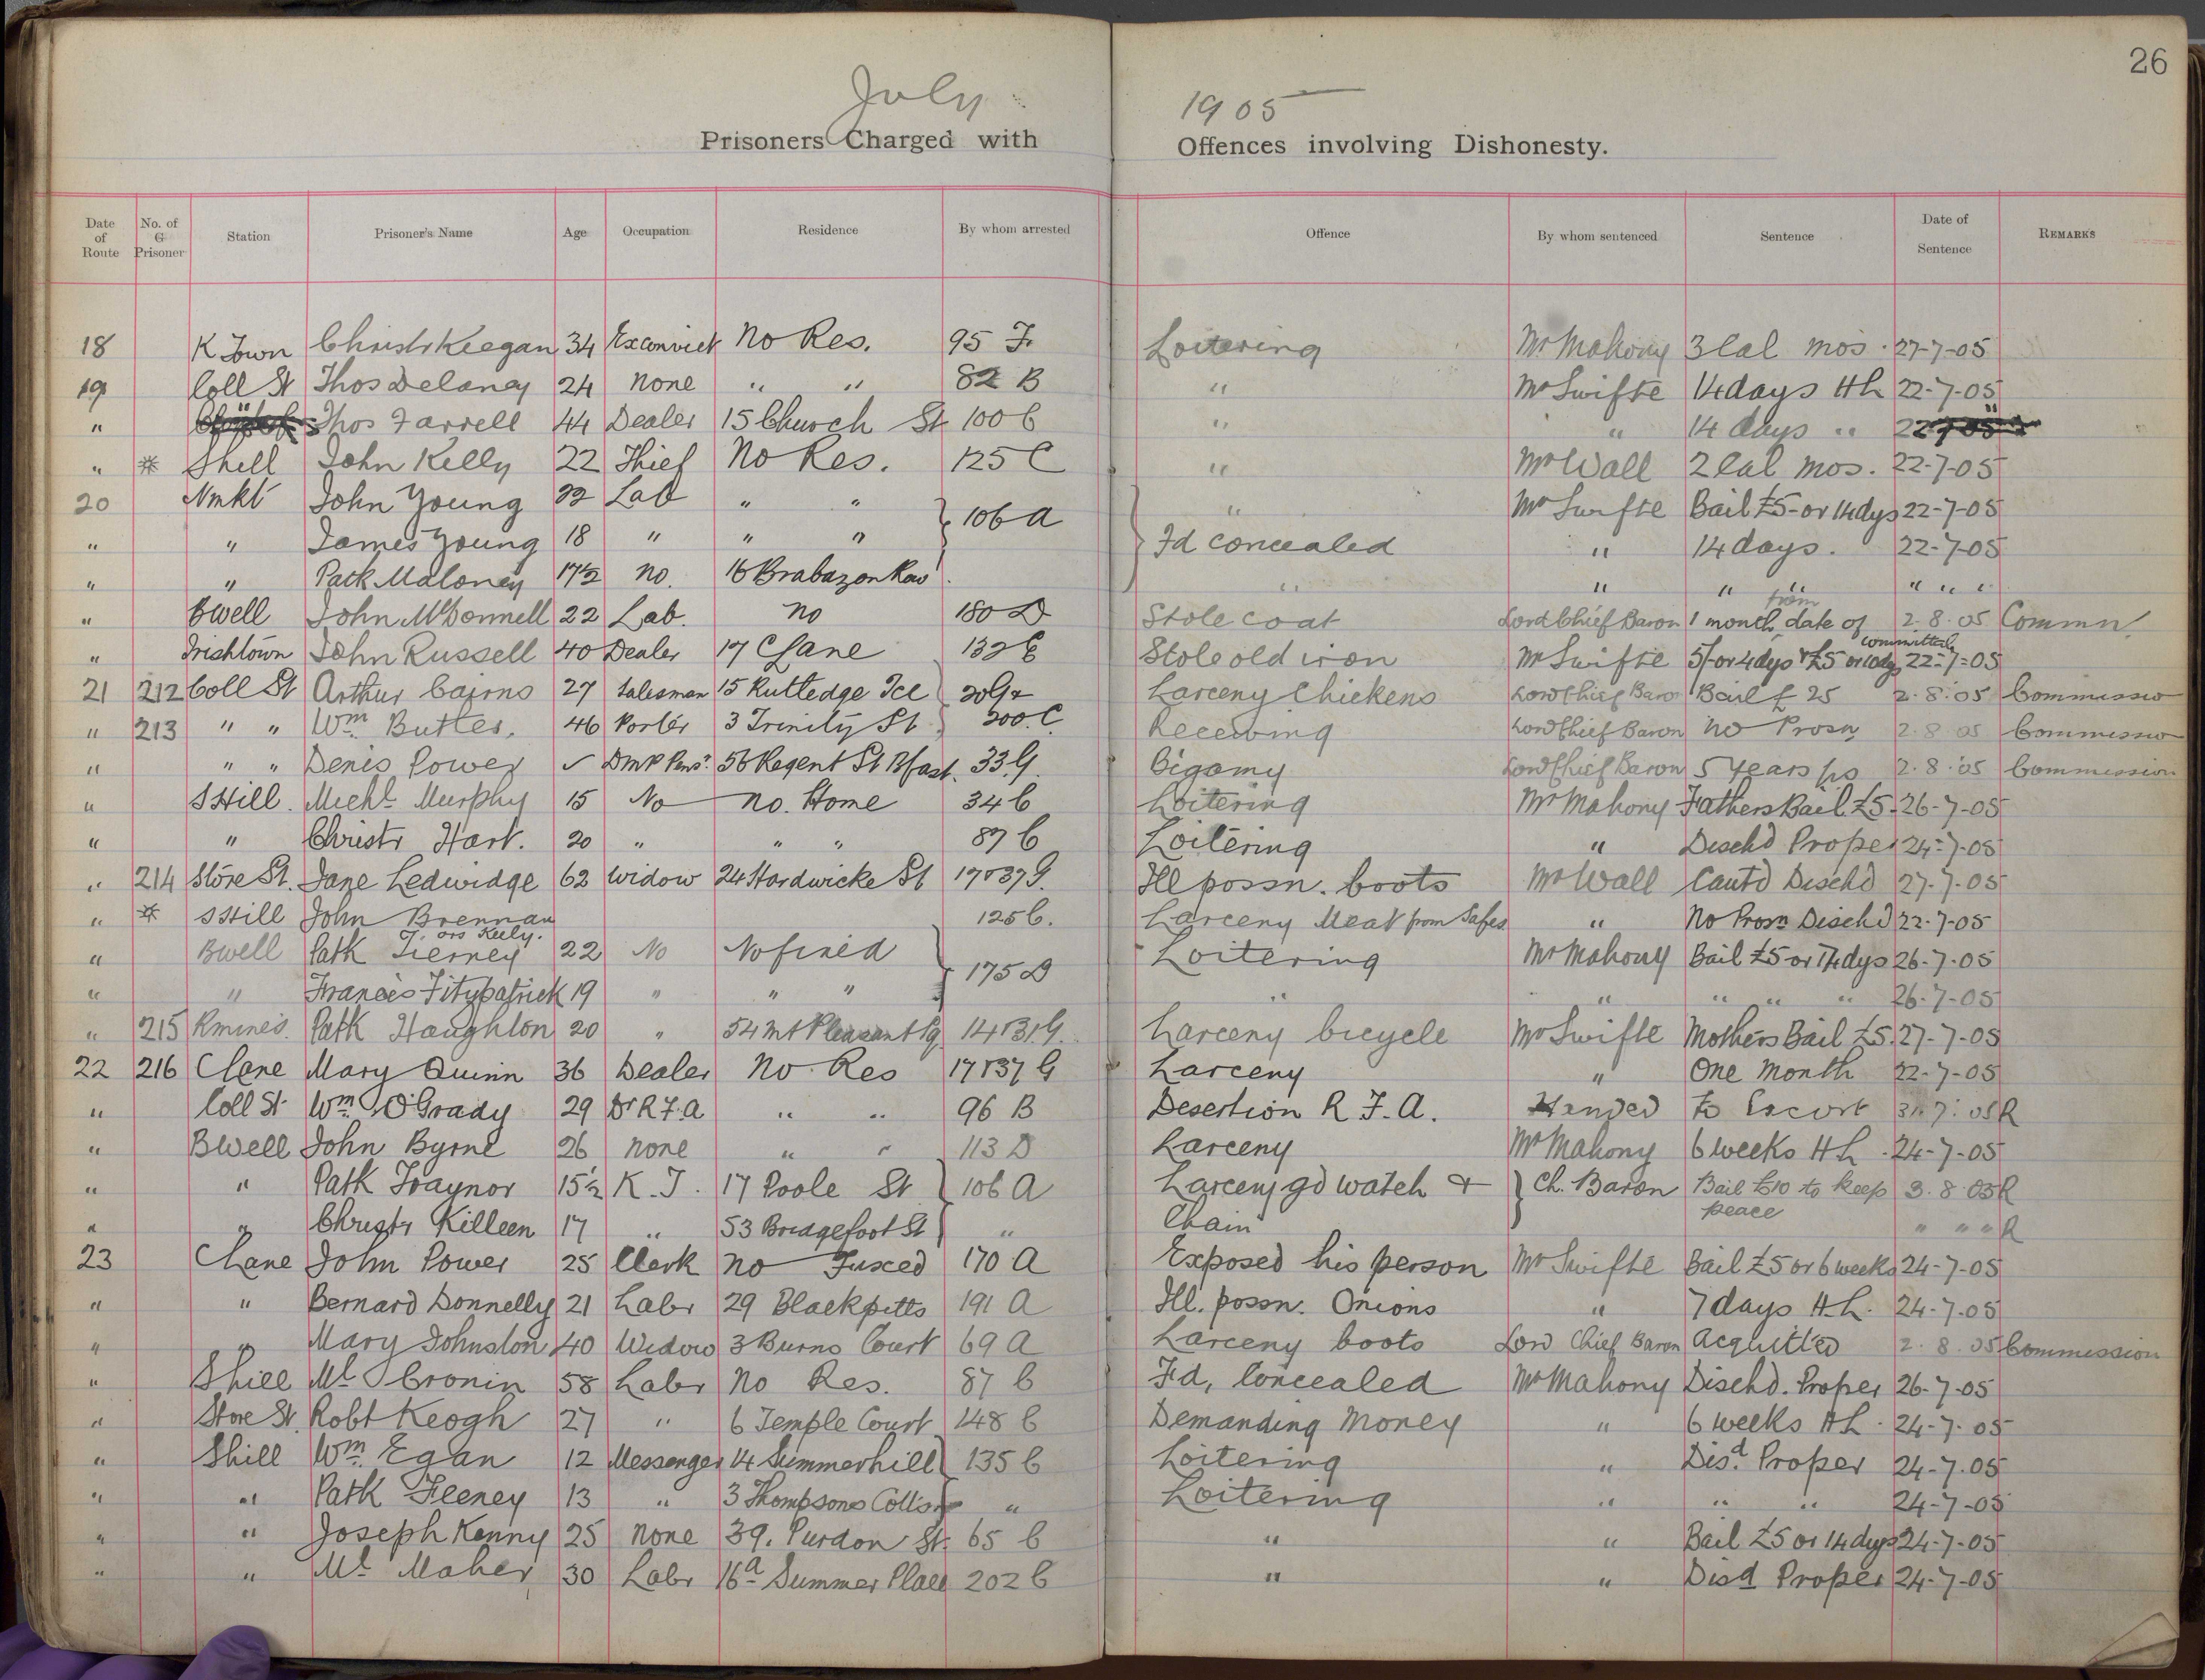 26
July 1905
Prisoners Charged with Offences involving Dishonesty.
Date of Route No. of G Prisoner Station Prisoner's Name Age Occupation Residence By whom arrested Offence By whom sentenced Sentence Date of Sentence REMARKS
18 K Town Christr Keegan 34 Exconvict No Res. 95 F. Loitering Mr Mahony 3 Cal mos. 27-7-05
19 Coll St Thos Delaney 24 none " " 82 B " Mr Swifte 14 days H L 22-7-05
" Thos Farrell 44 Dealer 15 Church St 100 C " " 14 days " 22
" * Shill John Kelly 22 Thief No Res. 125 C " Mr Wall 2 Cal mos. 22-7-05
20 Nmkt John Young 22 Lab " " } 106 A " Mr Swifte Bail £5- or 14 dys 22-7-05
" " James Young 18 " " " Fd concealed " 14 days. 22-7-05
" " Patk Maloney 17½ no. 16 Brabazon Row " " " " " " "
" Bwell John McDonnell 22 Lab. no 180 D Stole coat Lord Chief Baron 1 month from date of committal 2.8.05 Commn
" Irishtown John Russell 40 Dealer 17 C Lane 132 E Stole old iron Mr Swifte 5/- or 4 dys & £5 or 10 dys 22-7-05
21 212 Coll St Arthur Cairns 27 Salesman 15 Rutledge Tce } 20 G & Larceny Chickens Lord Chief Baron Bail £ 25 2.8.05 Commissio
" 213 " " Wm Butler, 46 Porter 3 Trinity St } 200.C Receiving Lord Chief Baron No Prosn 2.8.05 Commissio
" " " Denis Power ✓ DMP Pensr 56 Regent St Bfast. 33.G. Bigamy Lord Chief Baron 5 years ps 2.8.05 Commission
" S Hill. Michl Murphy 15 No no. Home 34 C Loitering Mr Mahony Fathers Bail £5. 26-7-05
" " Christr Hart. 20 " " " 87 C Loitering " Dischd Proper 24-7-05
" 214 Store St. Jane Ledwidge 62 Widow 24 Hardwicke St 17 & 37 G. Ill possn. boots Mr Wall Cautd Dischd 27-7-05
" * S Hill John Brennan ors Kiely. 125 C. Larceny Meat from Safes " No Prosn Dischd 22-7-05
" Bwell Patk Tierney 22 No No fixed } 175 D Loitering Mr Mahony Bail £5 or 14 dys 26-7-05
" " Francis Fitzpatrick 19 " " " " " " " " 26-7-05
" 215 Rmines. Patk Haughton 20 " 54 Mt Pleasant Sq 14 & 31 G. Larceny bicycle Mr Swifte Mothers Bail £5. 27-7-05
22 216 C Lane Mary Quinn 36 Dealer No Res 17 & 37 G Larceny " One Month 22-7-05
" Coll St Wm O'Grady 29 Dr R.F.A " " 96 B Desertion R.F.A. Handed to Escort 31.7.05 R
" Bwell John Byrne 26 none " " 113 D Larceny Mr Mahony 6 weeks H L. 24-7-05
" " Patk Traynor 15½ K.J. 17 Poole St } 106 A Larceny gd watch & } Ch. Baron Bail £10 to keep peace 3.8.05 R
" " Christr Killeen 17 " 53 Bridgefoot St } " Chain " " " R
23 C Lane John Power 25 Clerk No Fixed 170 A Exposed his person Mr Swifte Bail £5 or 6 weeks 24-7-05
" " Bernard Donnelly 21 Labr 29 Blackpitts 191 A Ill. possn. Onions " 7 days H.L. 24-7-05
" " Mary Johnston 40 Widow 3 Burns Court 69 A Larceny boots Lord Chief Baron Acquitted 2.8.05 Commission
" Shill Ml Cronin 58 Labr No Res. 87 C Fd, Concealed Mr Mahony Dischd. Proper 26-7-05
" Store St. Robt Keogh 27 " 6 Temple Court 148 C Demanding Money " 6 weeks H L. 24-7-05
" Shill Wm. Egan 12 Messenger 14 Summerhill } 135 C Loitering " Disd Proper 24-7-05
" " Patk Feeney 13 " 3 Thompsons Cotts } " Loitering " " " 24-7-05
" " Joseph Kenny 25 none 39. Purdon St. 65 C " " Bail £5 or 14 dys 24-7-05
" " Ml Maher 30 Labr 16a Summer Place 202 C " " Disd Proper 24-7-05